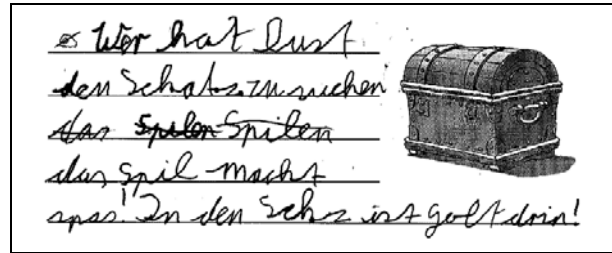 Wer hat lust
den Schats zu suchen
das Spilen Spilen
das Spil macht
spas! In den Schz ist golt drin!